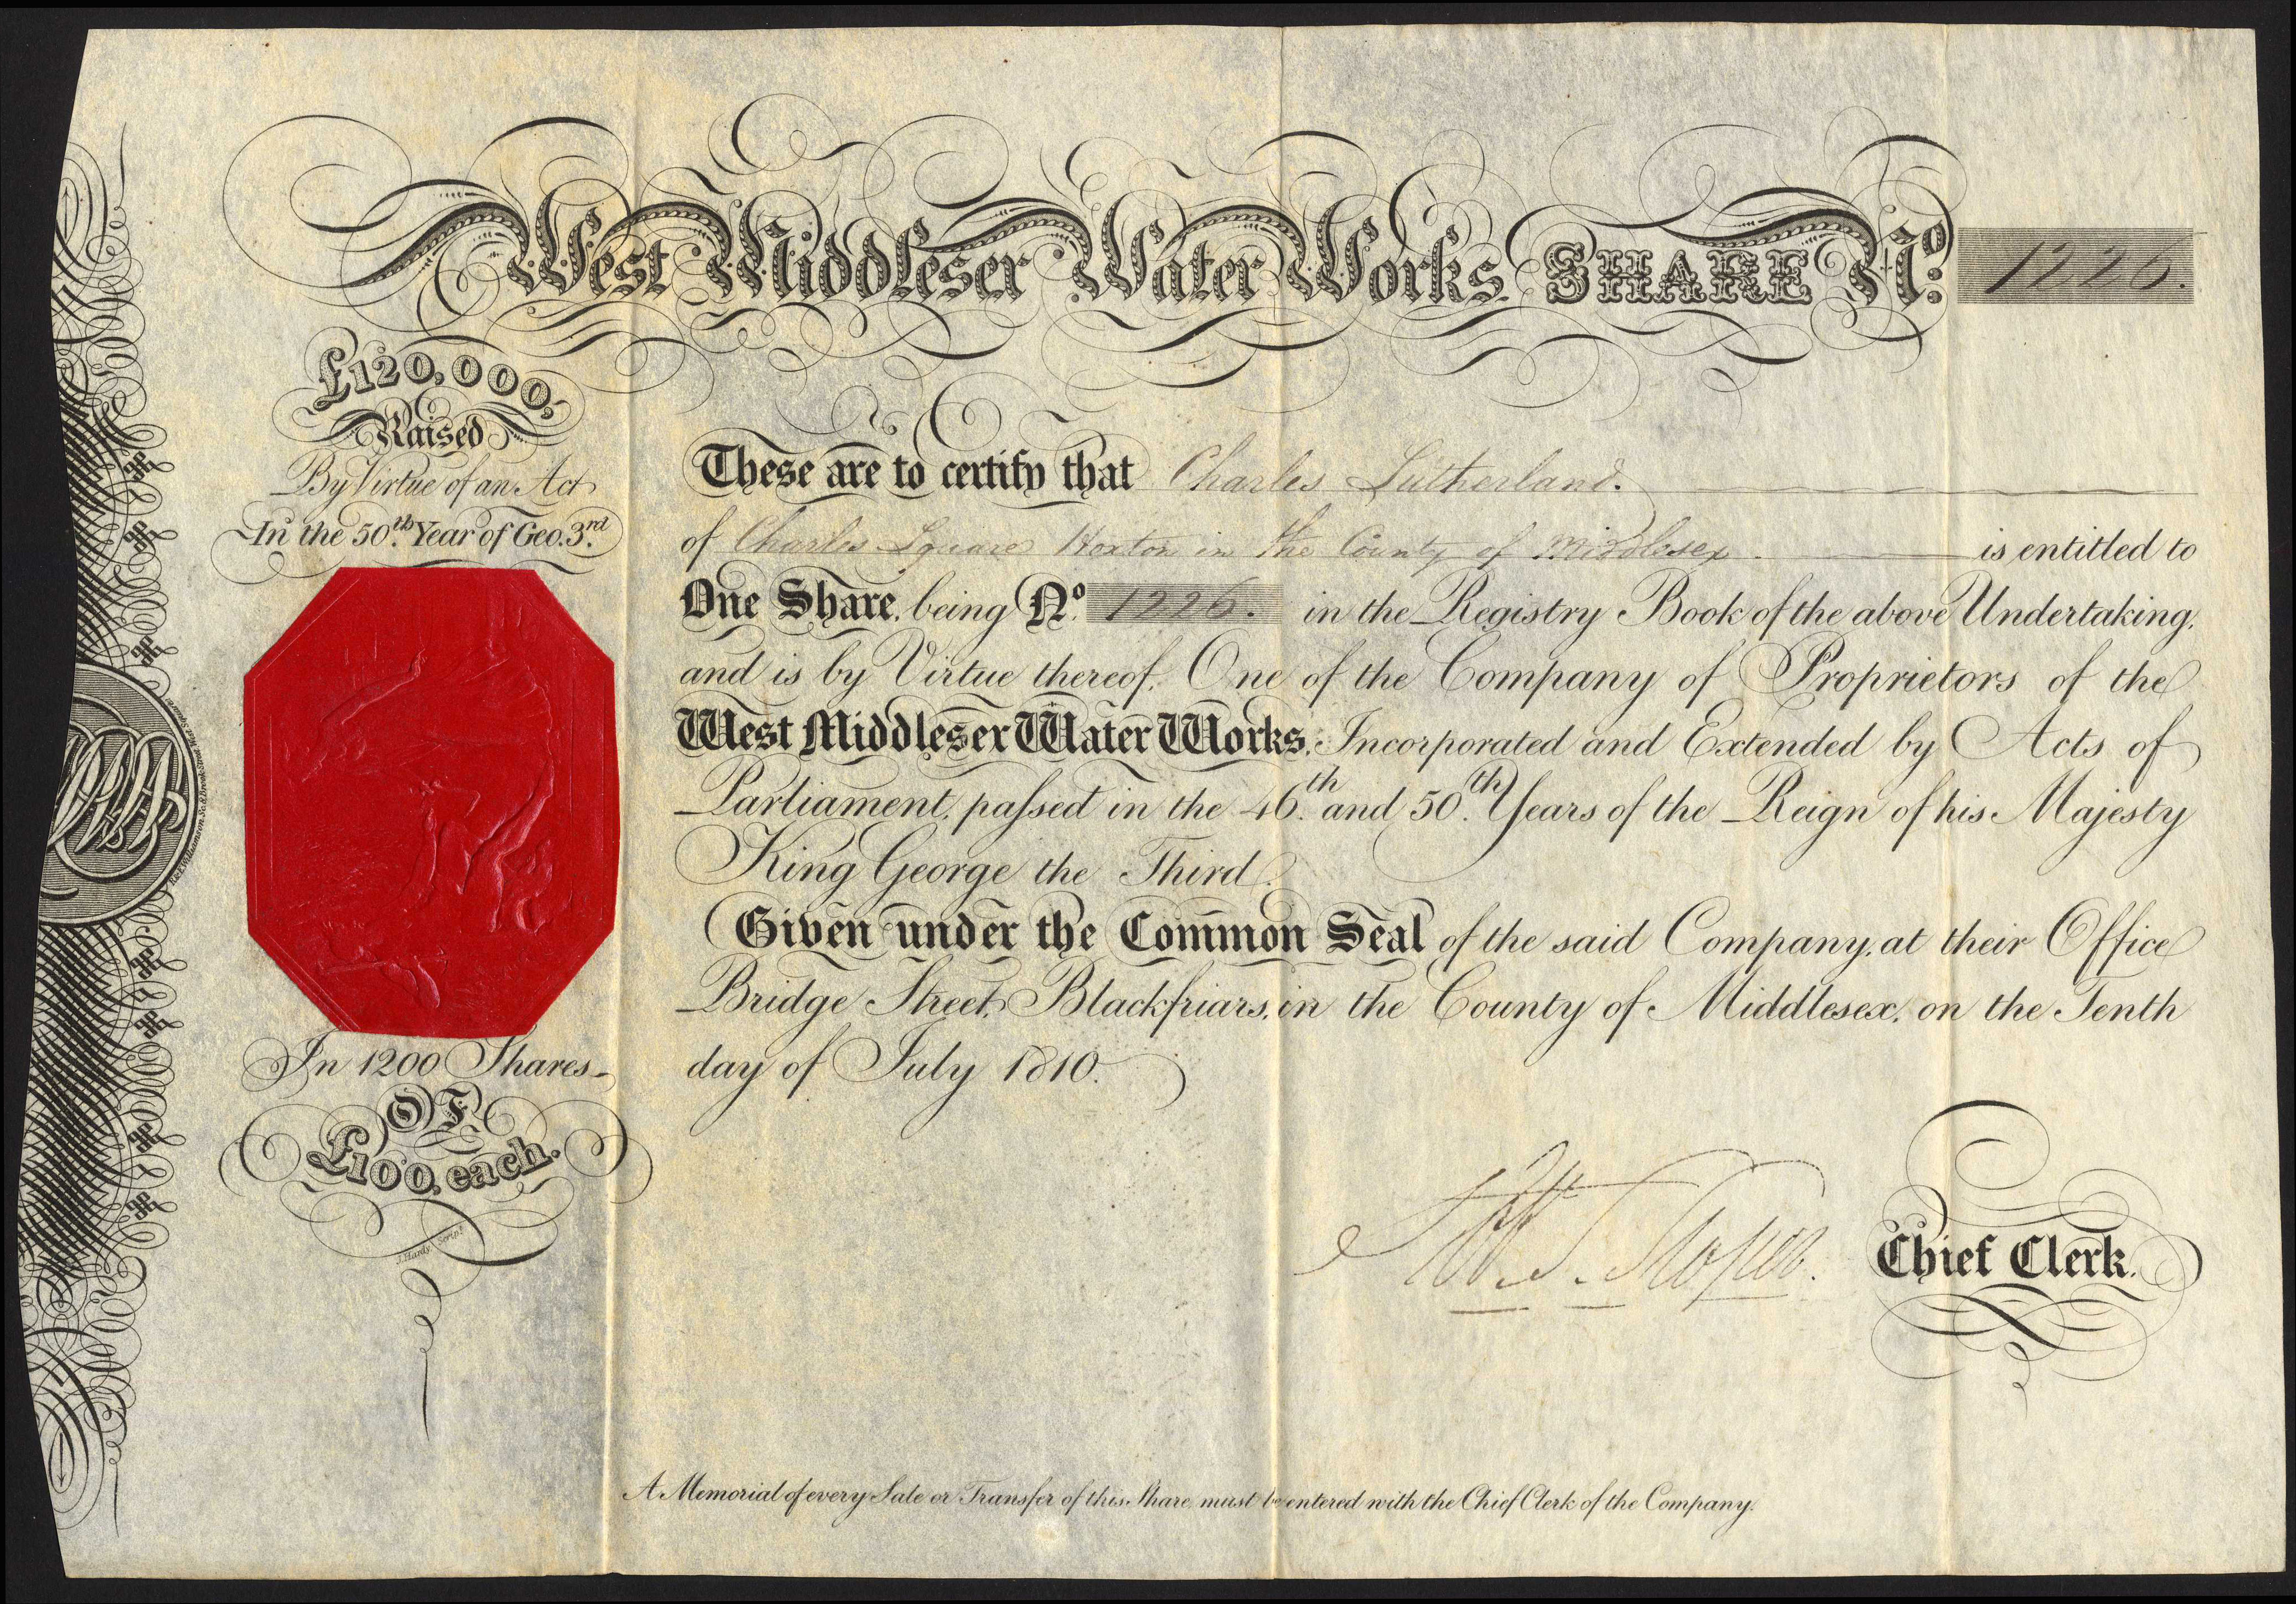 West Middlesex Water Works SHARE No. 1226.
£120,000,
Raised
By Virtue of an Act
In the 50th Year of Geo. 3rd
These are to certify that Charles Sutherland.
of Charles Square Hoxton in the County of Middlesex. is entitled to
One Share, being No. 1226. in the Registry Book of the above Undertaking,
and is by Virtue thereof, One of the Company of Proprietors of the
West Middlesex Water Works, Incorporated and Extended by Acts of
Parliament, passed in the 46th and 50th Years of the Reign of his Majesty
King George the Third.
Given under the Common Seal of the said Company, at their Office
Bridge Street, Blackfriars, in the County of Middlesex, on the Tenth
day of July 1810.
In 1200 Shares
OF
£100, each.
Hardy Script
Chief Clerk.
A Memorial of every Sale or Transfer of this Share must be entered with the Chief Clerk of the Company.